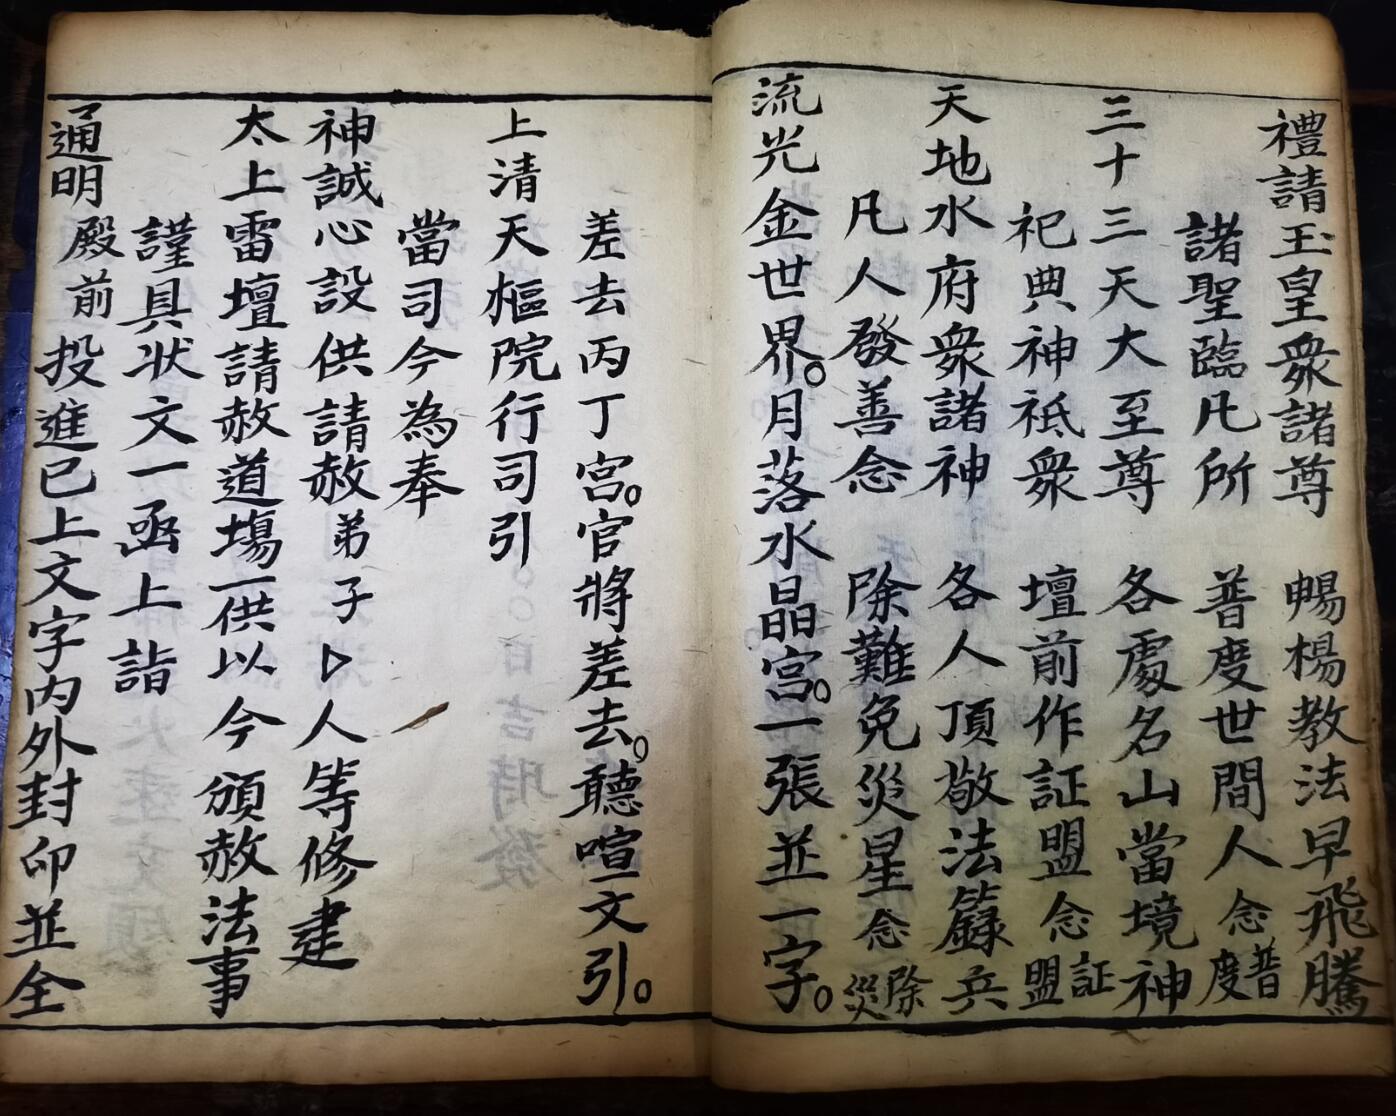 禮請玉皇衆諸尊　暢楊教法早飛騰
諸聖臨凡所　普度世間人念普度
三十三天大至尊　各處名山當境神
祀典神祇衆　壇前作証盟念証盟
天地水府衆諸神　各人頂敬法籙兵
凡人發善念　除難免災星念除災
流光金世界。月落水晶宫。一張並一字。
差去丙丁宫。官將差去。聽喧文引。
上清天樞院行司引
當司今為奉
神誠心設供請赦弟子人等修建
太上雷壇請赦道塲一供以今頒赦法事
謹具状文一函上詣
通明殿前投進已上文字内外封印並全